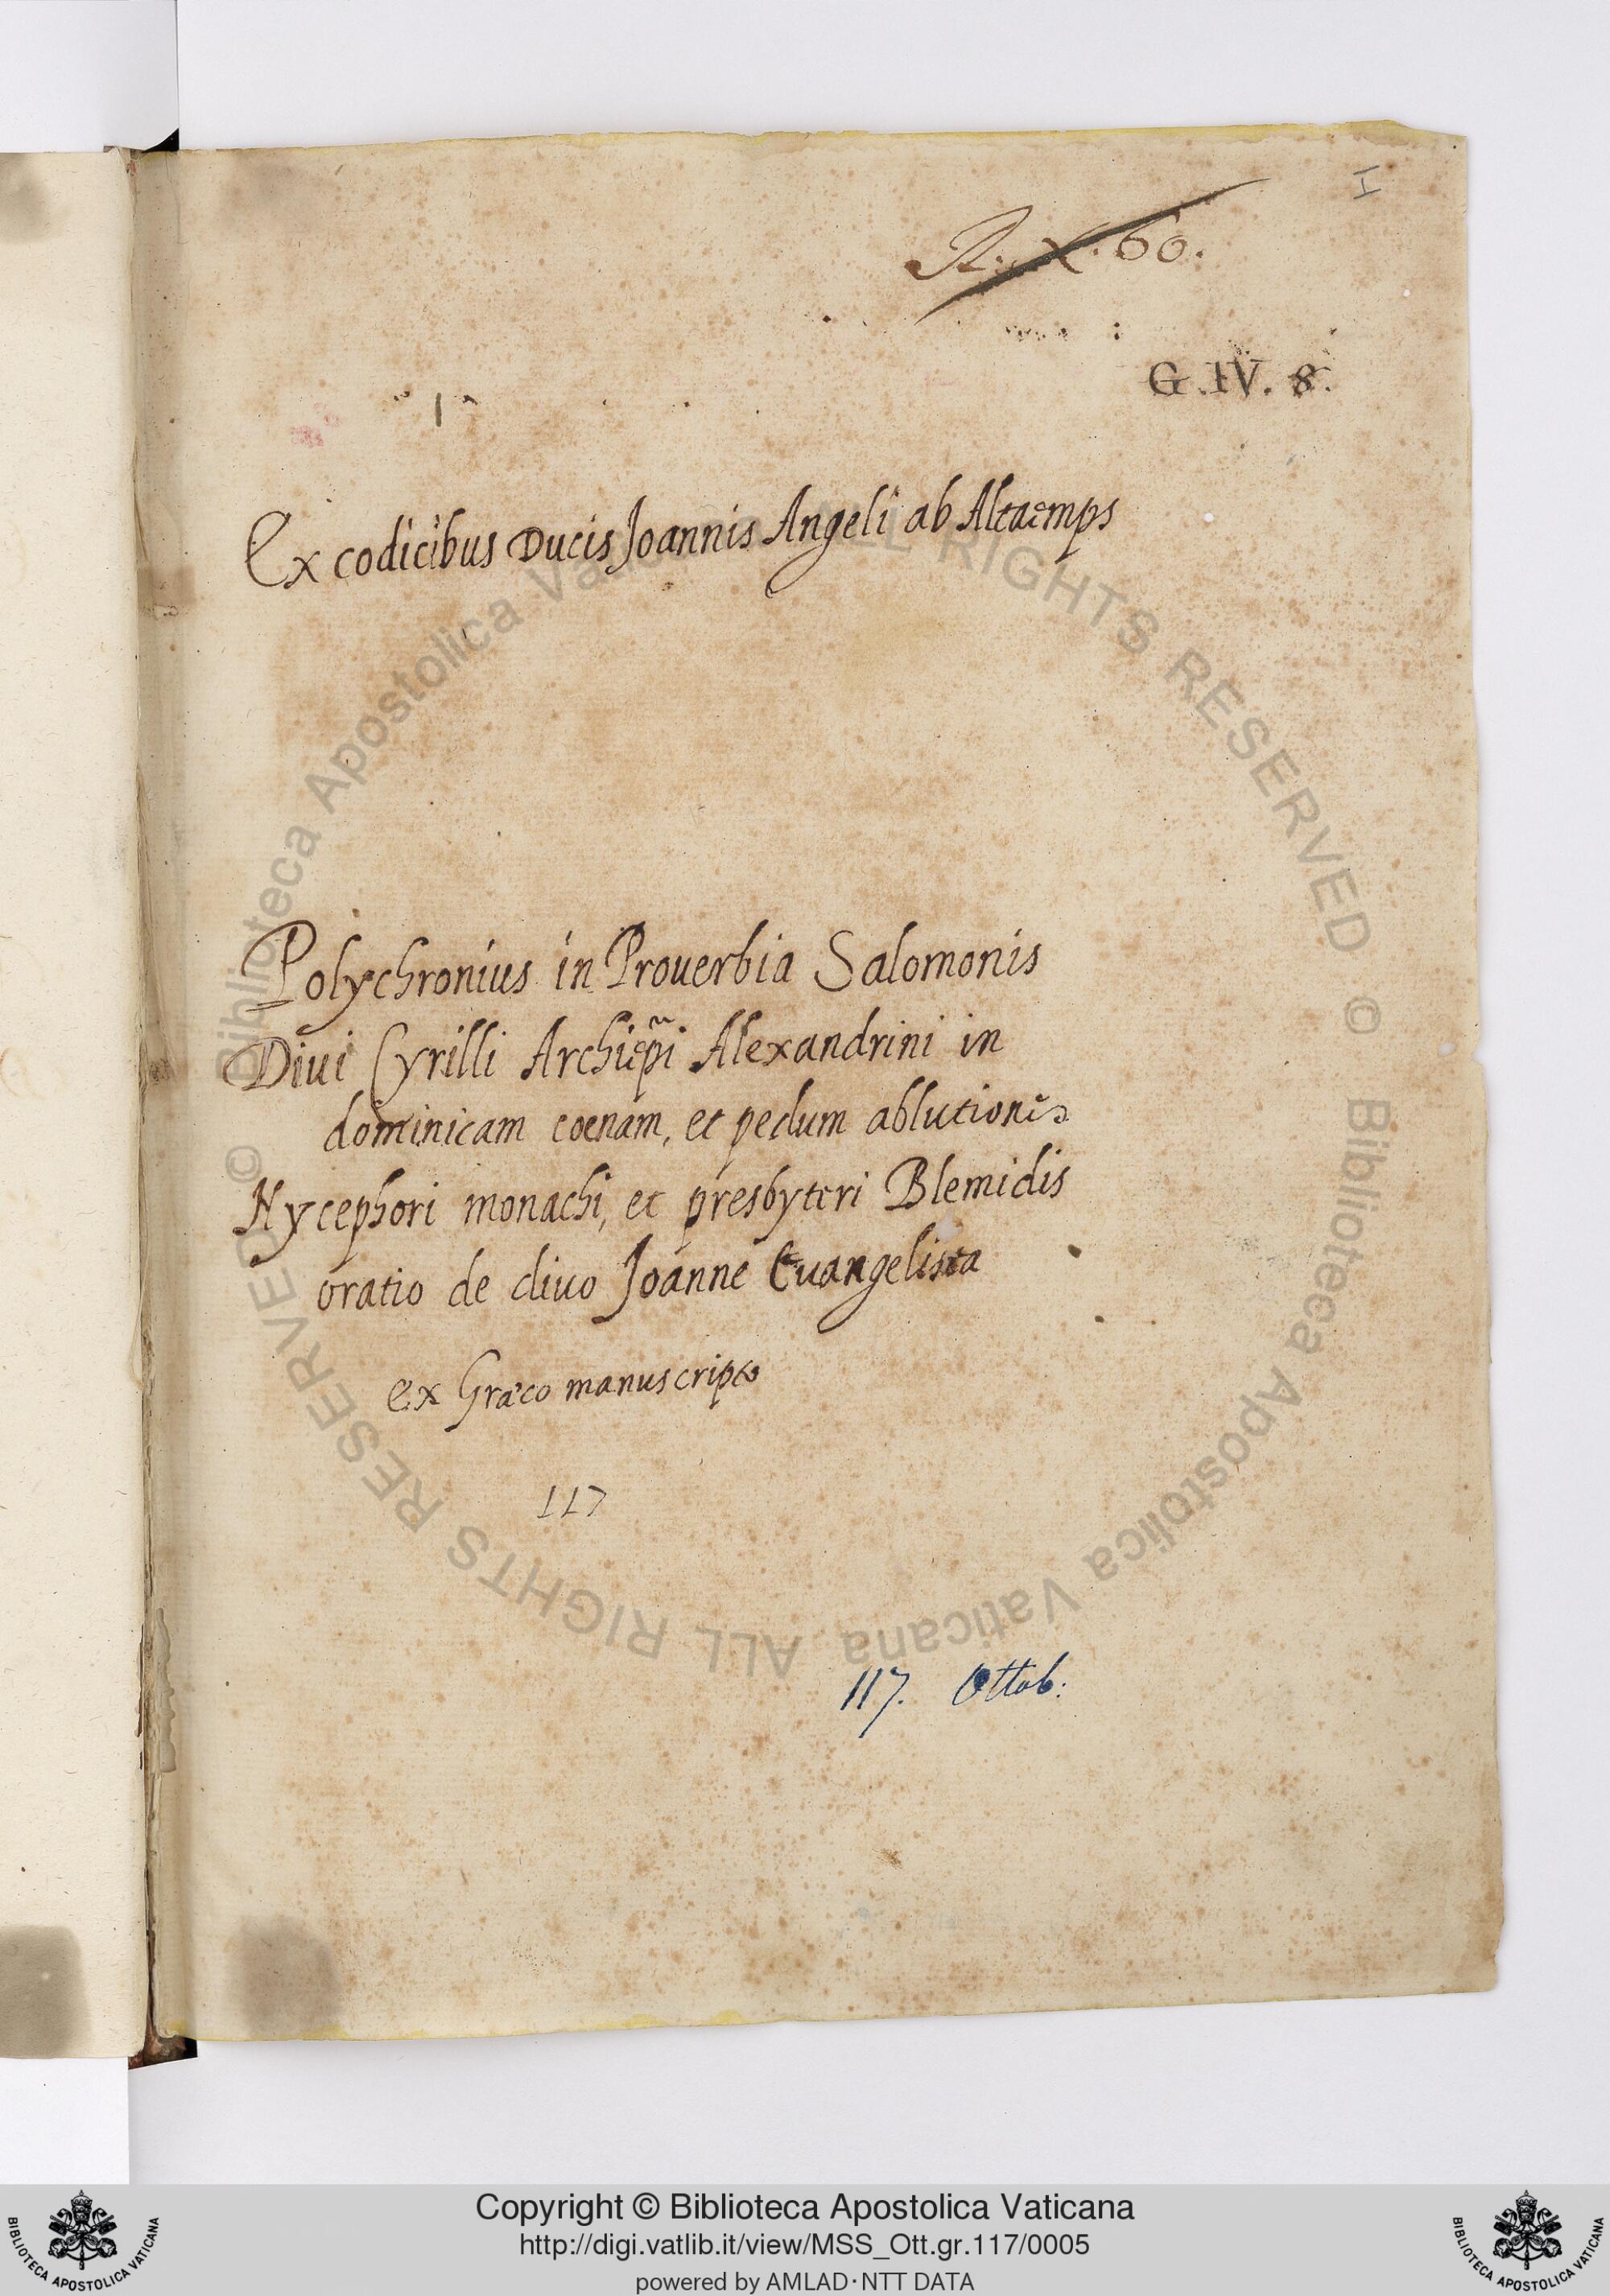 I
R. X. 60.
G. IV. 8.
Ex codicibus Ducis Joannis Angeli ab Altaemps
Polychronius in Prouerbia Salomonis
Diui Cyrilli Archiep̃i Alexandrini in
dominicam coenam, et pedum ablutiones
Nycephori monachi, et presbyteri Blemidis
oratio de diuo Joanne Euangelista
ex Græco manuscripto
117
117. Ottob:
© Biblioteca Apostolica Vaticana ALL RIGHTS RESERVED © Biblioteca Apostolica Vaticana ALL RIGHTS RESERVED
Copyright © Biblioteca Apostolica Vaticana
http://digi.vatlib.it/view/MSS_Ott.gr.117/0005
powered by AMLAD·NTT DATA
BIBLIOTECA APOSTOLICA VATICANA
BIBLIOTECA APOSTOLICA VATICANA